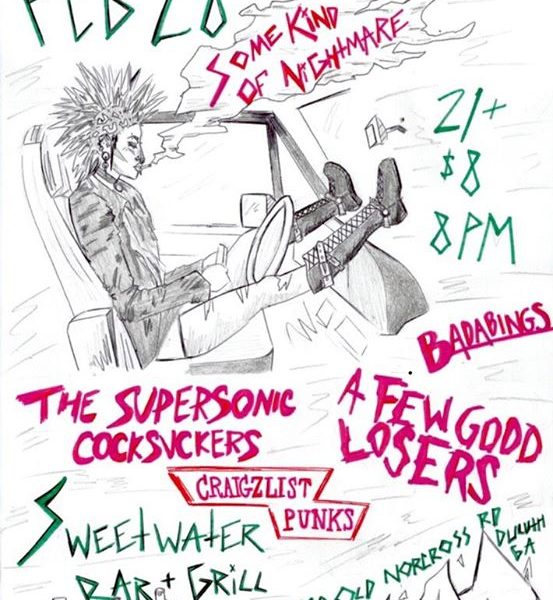 FEB 20
SOME KIND
OF NIGHTMARE
21+
$8
8PM
BADABINGS
THE SUPERSONIC
COCKSUCKERS
A FEW GOOD
LOSERS
CRAIGZLIST
PUNKS
SWEETWATER
BAR + GRILL
OLD NORCROSS RD
DULUTH
GA